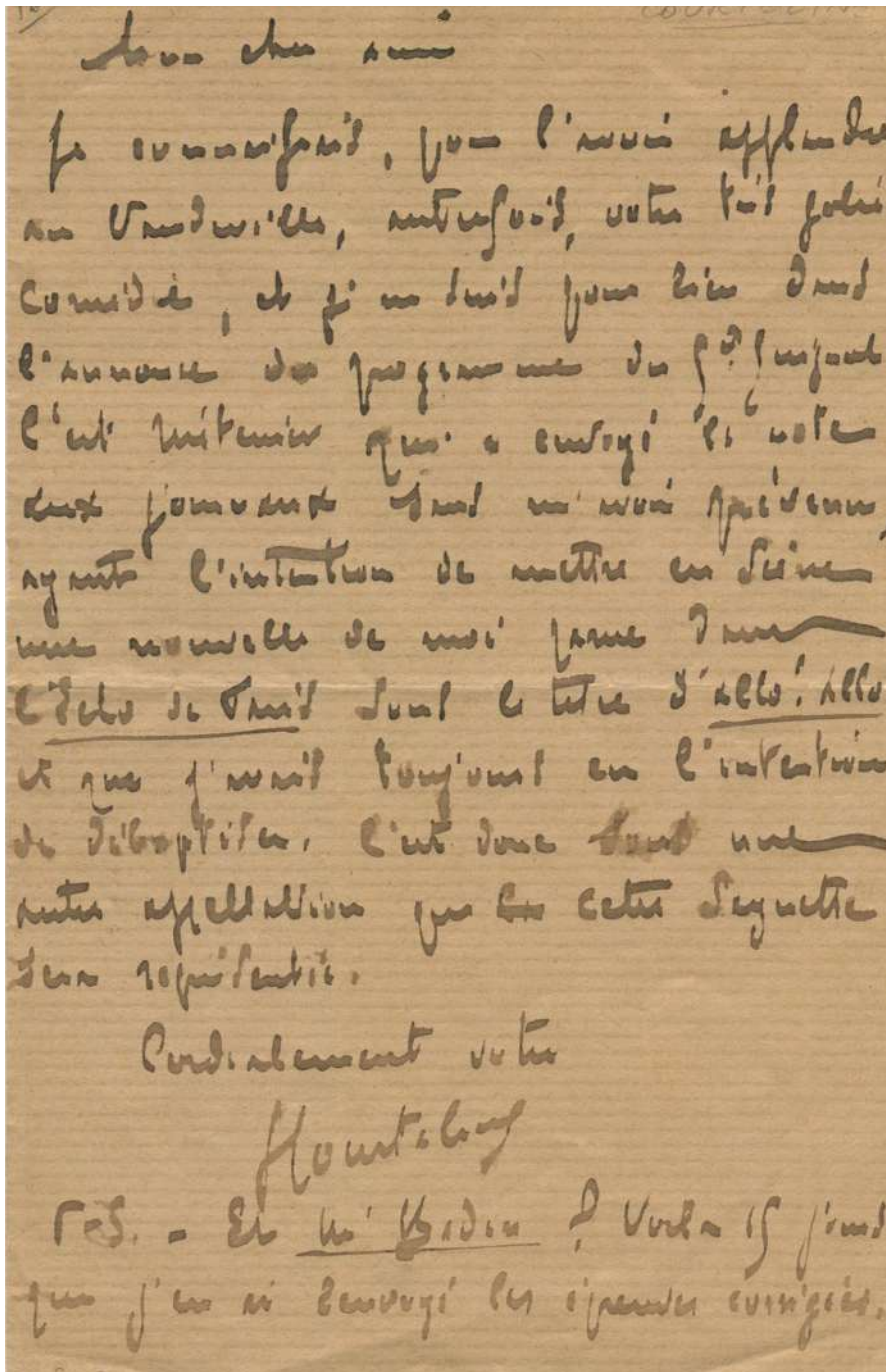 COURTELIN
Mon cher ami
Je connaissais, pour l'avoir applaudie
au Vaudeville, autrefois, votre très jolie
comédie, et je ne suis pour rien dans
l'annonce du programme du Gd Guignol
C'est Méténier qui a envoyé la note
aux journaux sans m'avoir prévenu,
ayant l'intention de mettre en scène
une nouvelle de moi parue dans
l'Echo de Paris sous le titre d'Allo! Allo
et que j'avais toujours eu l'intention
de débaptiser. C'est donc sous une
autre appellation que cette saynette
sera représentée.
Cordialement votre
GCourteline
P-S. - Et Mr Badin ? Voila 15 jours
que j'en ai renvoyé les épreuves corrigées.